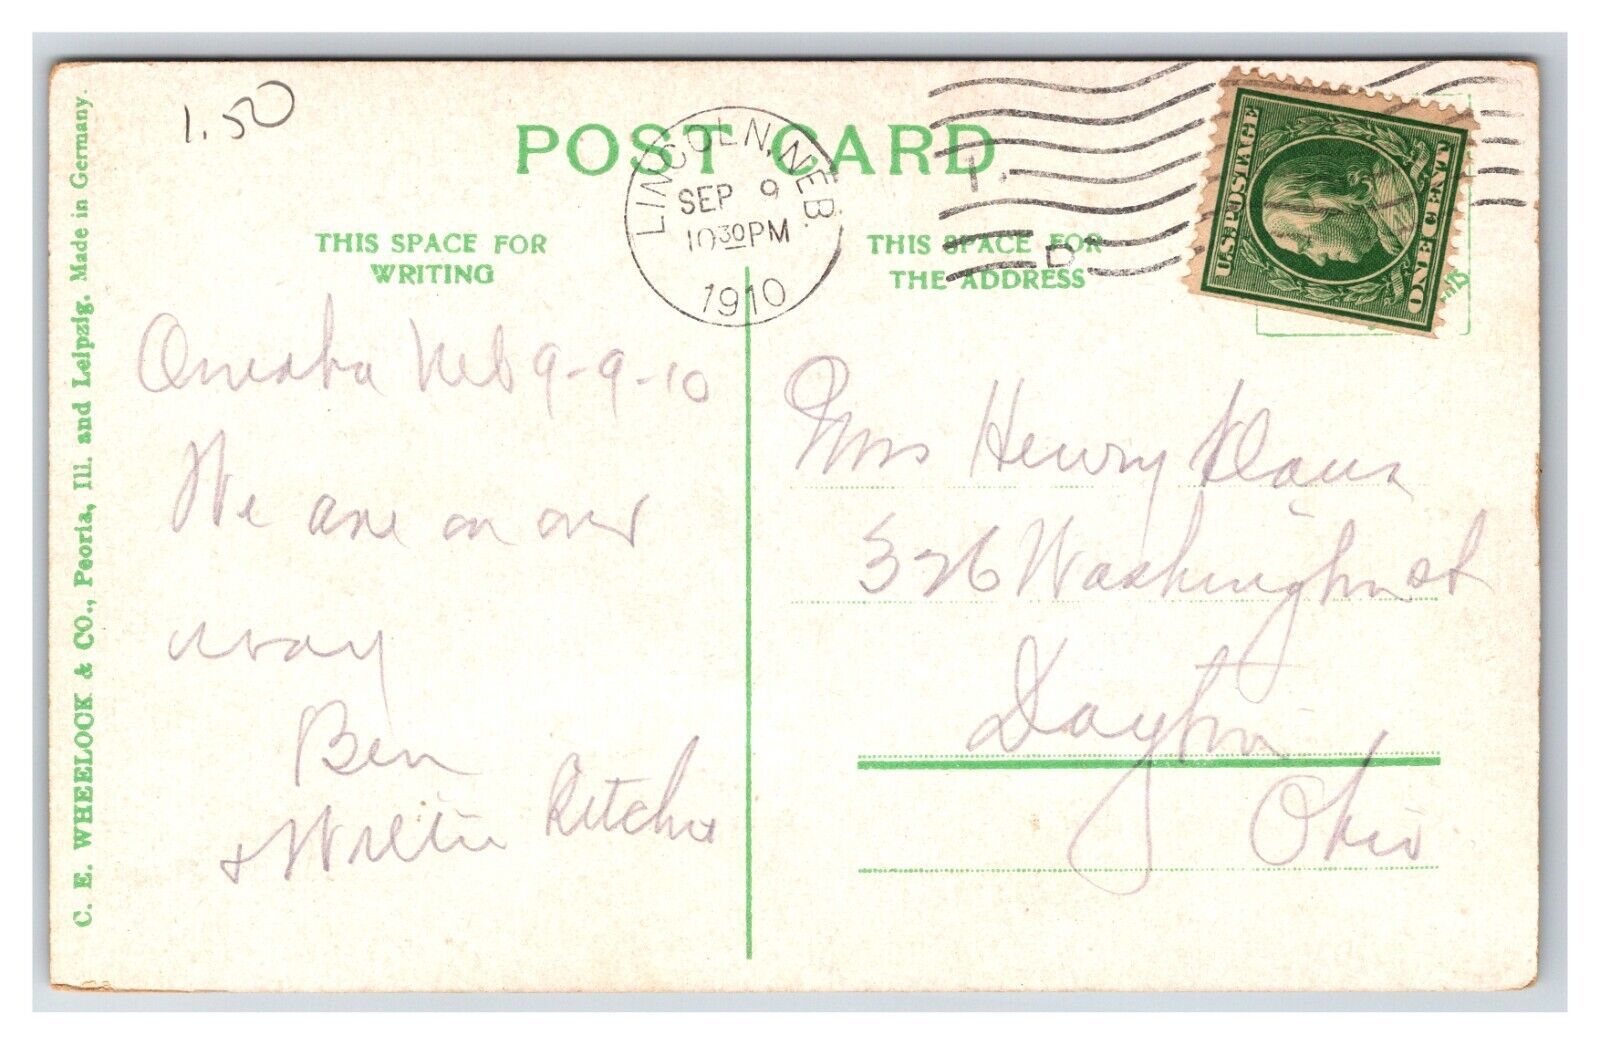 1.50
POST CARD
LINCOLN, NEB.
SEP 9
10 30 PM
1910
U.S. POSTAGE
ONE CENT
THIS SPACE FOR
WRITING
THIS SPACE FOR
THE ADDRESS
C. E. WHEELOCK & CO., Peoria, Ill. and Leipzig. Made in Germany.
Omaha Neb 9-9-10
We are on our
way
Ben
& Willie Ritchie
Mrs Henry
326 Washington st
Dayton
Ohio